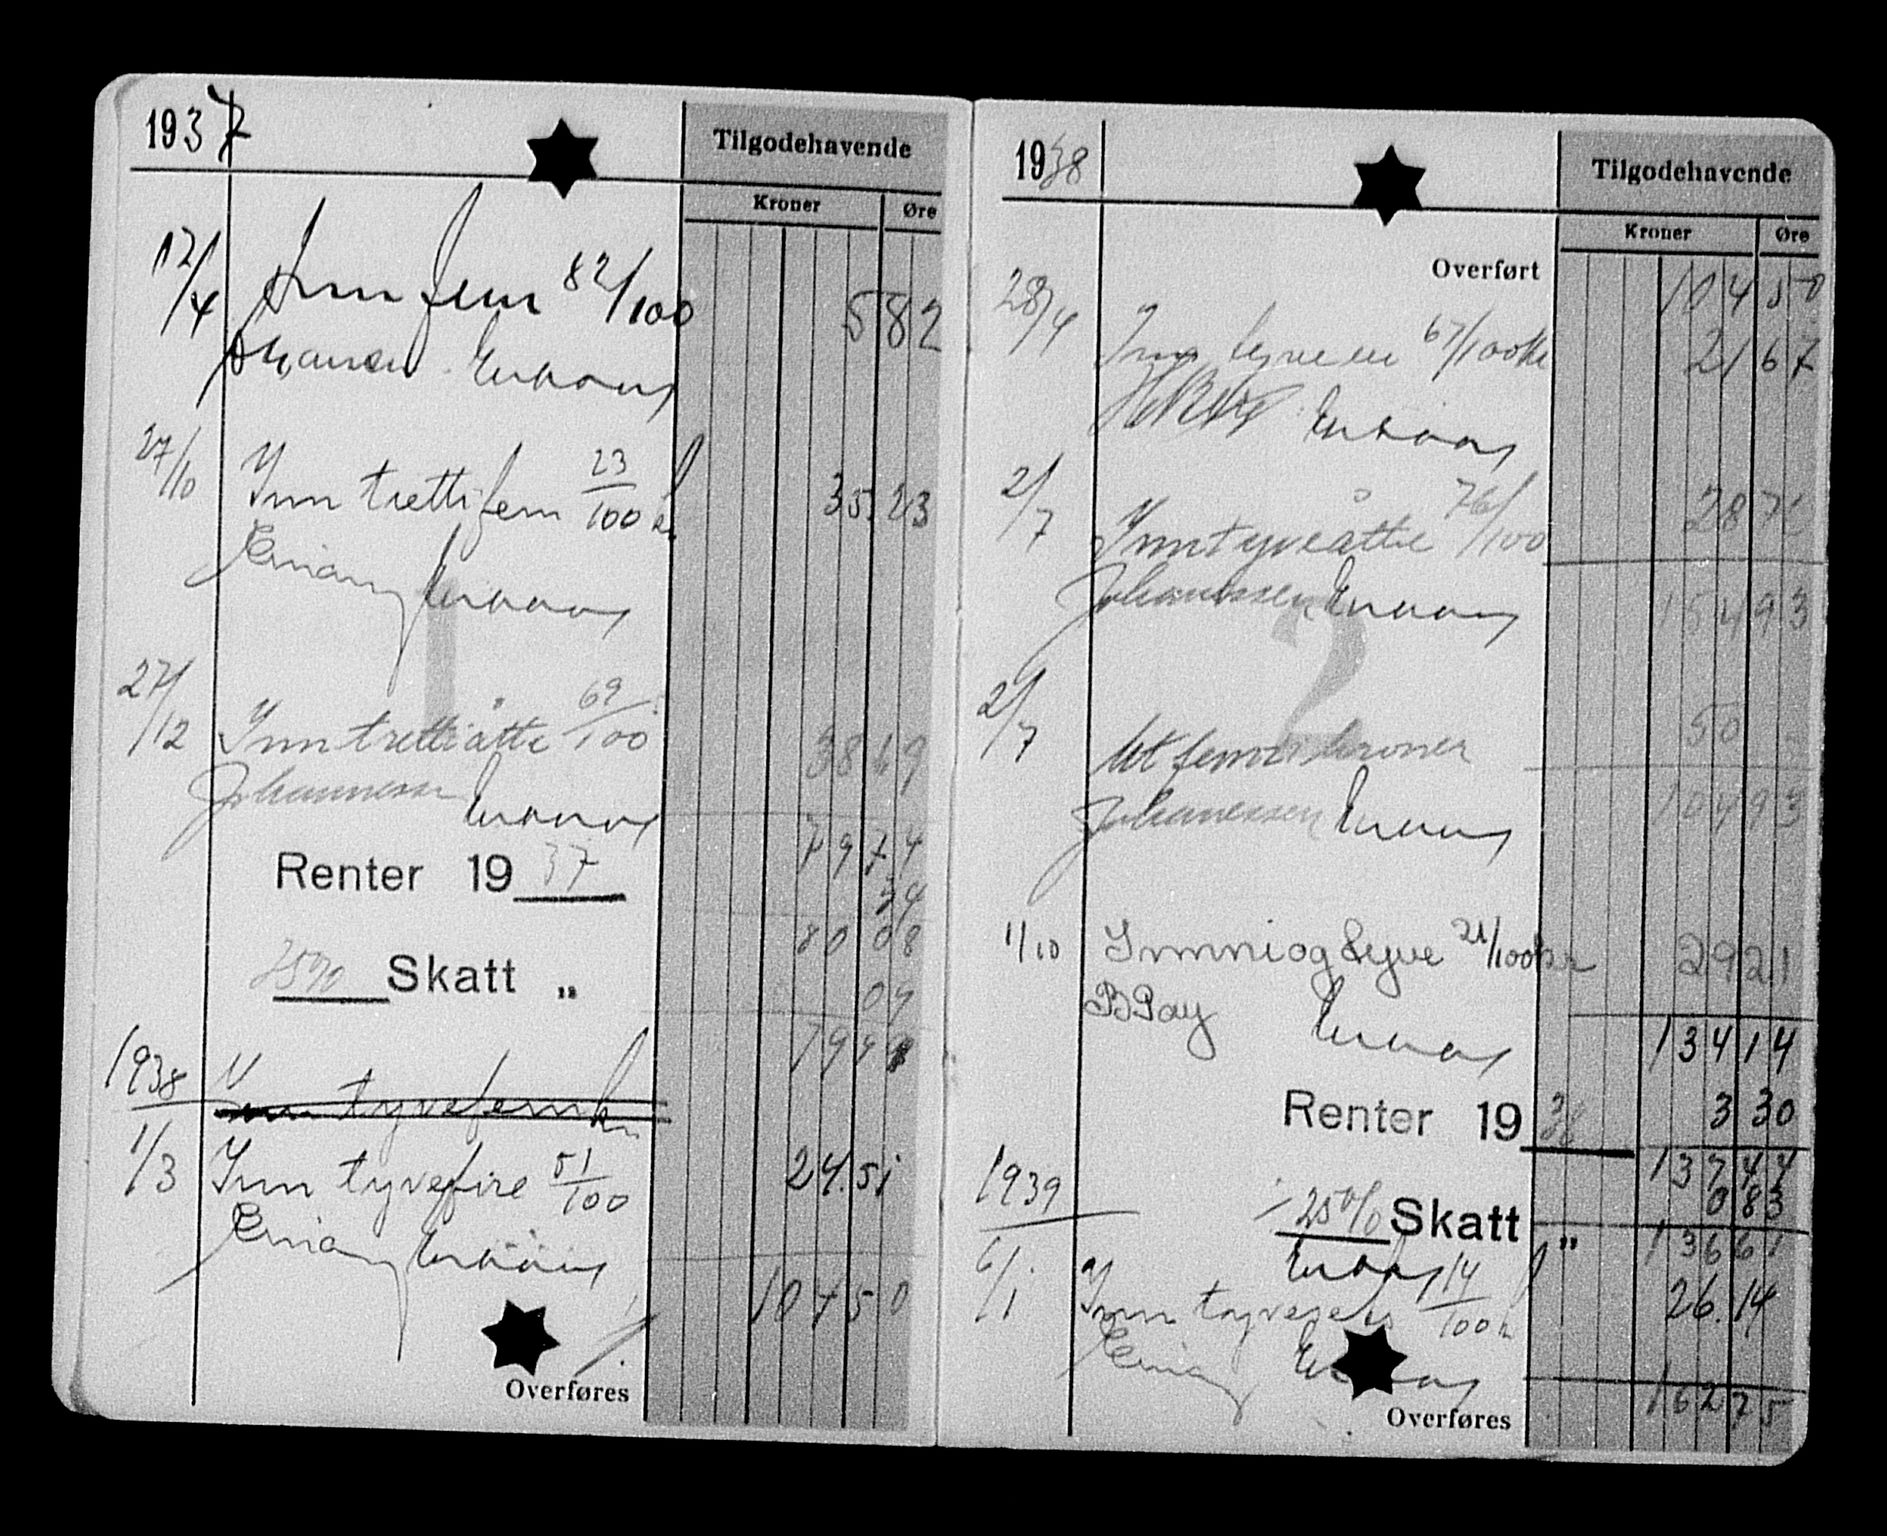 1937 Tilgodehavende
Kroner Øre
12/4 Inn fem 82/100 5 82
27/10 Inn trettifem 23/100 kr 35.23
1
27/12 Inn trettiåtte 69/100 38 69
Johannessen
79 74
Renter 1937 34
80 08
25% Skatt „ 09
79 99
1938 Inn tyvefem kr
1/3 Inn tyvefire 51/100 24.51
104 50
Overføres
1938 Tilgodehavende
Kroner Øre
Overført 104 50
28/4 Inn tyveen 67/100 kr 21 67
2/7 Inn tyveåtte 76/100 28 76
Johanessen
154 93
2
2/7 Ut femti kroner 50 -
Johanessen 104 93
1/10 Inn niogtyve 21/100 kr 29 21
B Pay
134 14
Renter 1938 3 30
137 44
1939 25% Skatt „ 0 83
136 61
6/1 Inn tyveseks 14/100 kr 26.14
162 75
Overføres